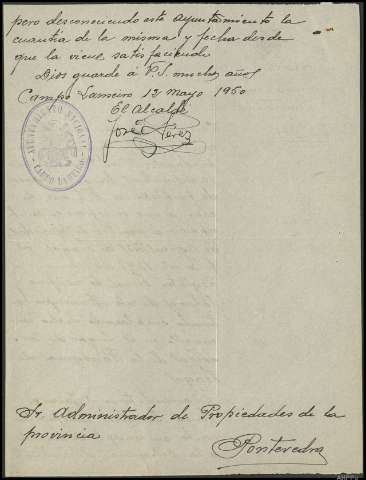 pero desconociendo este Ayuntamiento la
cuantia de la misma y fecha desde
que la viene satisfaciendo
Dios guarde á V.S. muchos años
Campo Lameiro 12 mayo 1950
El Alcalde
José Pérez
AYUNTAMIENTO NACIONAL
CAMPO LAMEIRO
Sr. Administrador de Propiedades de la
provincia
Pontevedra